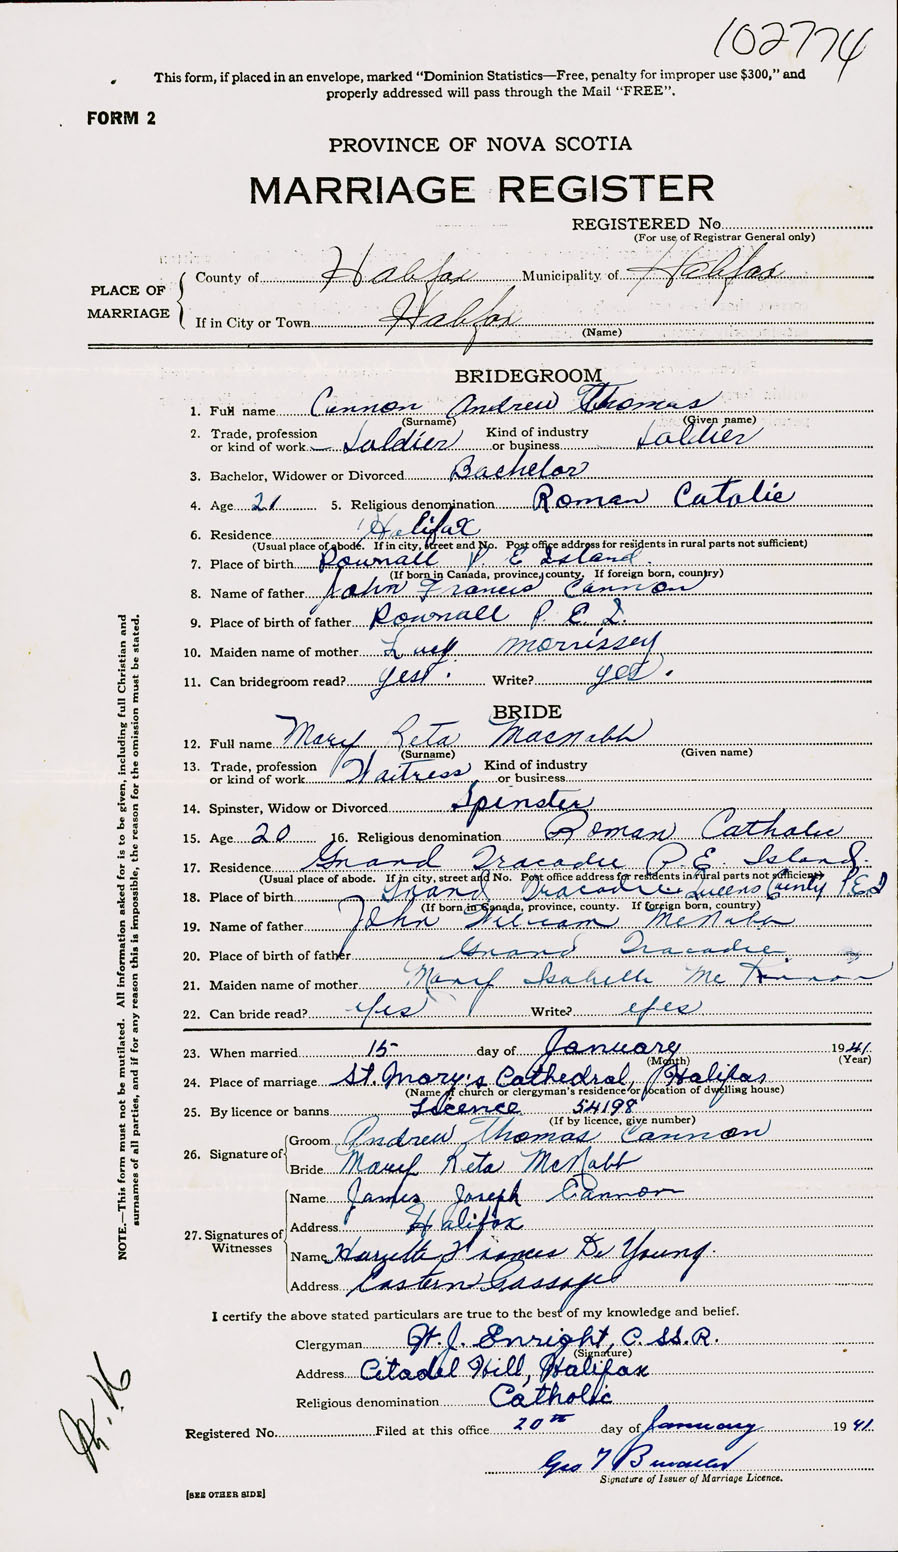 102774
This form, if placed in an envelope, marked “Dominion Statistics—Free, penalty for improper use $300,” and
properly addressed will pass through the Mail “FREE”.
FORM 2
PROVINCE OF NOVA SCOTIA
MARRIAGE REGISTER
REGISTERED No.
(For use of Registrar General only)
PLACE OF MARRIAGE
County of Halifax Municipality of Halifax
If in City or Town Halifax
(Name)
BRIDEGROOM
1. Full name Cannon Andrew Thomas
(Surname) (Given name)
2. Trade, profession or kind of work Soldier Kind of industry or business Soldier
3. Bachelor, Widower or Divorced Bachelor
4. Age 21 5. Religious denomination Roman Catolic
6. Residence Halifax
(Usual place of abode. If in city, street and No. Post office address for residents in rural parts not sufficient)
7. Place of birth Pownall P. E Island.
(If born in Canada, province, county. If foreign born, country)
8. Name of father John Francis Cannon
9. Place of birth of father Pownall P. E. I.
10. Maiden name of mother Lucy Morrissey
11. Can bridegroom read? yes. Write? yes.
BRIDE
12. Full name Mary Reta MacNabb
(Surname) (Given name)
13. Trade, profession or kind of work Waitress Kind of industry or business
14. Spinster, Widow or Divorced Spinster
15. Age 20 16. Religious denomination Roman Catholic
17. Residence Grand Tracadie P.E. Island.
(Usual place of abode. If in city, street and No. Post office address for residents in rural parts not sufficient)
18. Place of birth Grand Tracadie Queens County P.E.I
(If born in Canada, province, county. If foreign born, country)
19. Name of father John William McNabb
20. Place of birth of father Grand Tracadie
21. Maiden name of mother Mary Isabelle McKinnon
22. Can bride read? Yes Write? yes
23. When married 15 day of January 1941.
(Month) (Year)
24. Place of marriage St. Mary's Cathedral, Halifax
(Name of church or clergyman's residence or location of dwelling house)
25. By licence or banns Licence 54198
(If by licence, give number)
26. Signature of
Groom Andrew Thomas Cannon
Bride Mary Reta McNabb
27. Signatures of Witnesses
Name James Joseph Cannon
Address Halifax
Name Frances De Young.
Address Eastern Passage
I certify the above stated particulars are true to the best of my knowledge and belief.
Clergyman W. J. Enright, C. SS. R.
(Signature)
Address Citadel Hill, Halifax
Religious denomination Catholic
Registered No. Filed at this office 20th day of January 1941.
Geo T
Signature of Issuer of Marriage Licence.
[SEE OTHER SIDE]
NOTE.—This form must not be mutilated. All information asked for is to be given, including full Christian and
surnames of all parties, and if for any reason this is impossible, the reason for the omission must be stated.